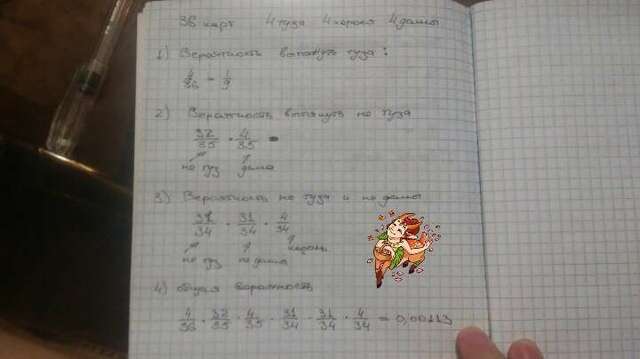 36 карт 4 туза 4 короля 4 дамы
1) Вероятность вытянуть туза:
4/36 = 1/9
2) Вероятность вытянуть не туза
32/35 · 4/35 =
не туз дама
3) Вероятность не туза и не дамы
31/34 · 31/34 · 4/34
король
не туз не дама
4) общая вероятность
4/36 · 32/35 · 4/35 · 31/34 · 31/34 · 4/34 = 0,00113